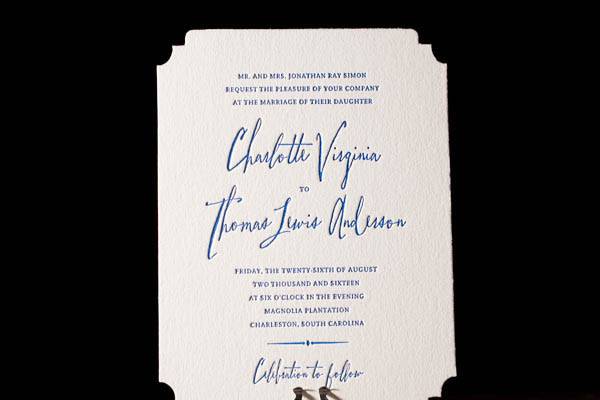 MR. AND MRS. JONATHAN RAY SIMON
REQUEST THE PLEASURE OF YOUR COMPANY
AT THE MARRIAGE OF THEIR DAUGHTER
Charlotte Virginia
TO
Thomas Lewis Anderson
FRIDAY, THE TWENTY-SIXTH OF AUGUST
TWO THOUSAND AND SIXTEEN
AT SIX O'CLOCK IN THE EVENING
MAGNOLIA PLANTATION
CHARLESTON, SOUTH CAROLINA
Celebration to follow